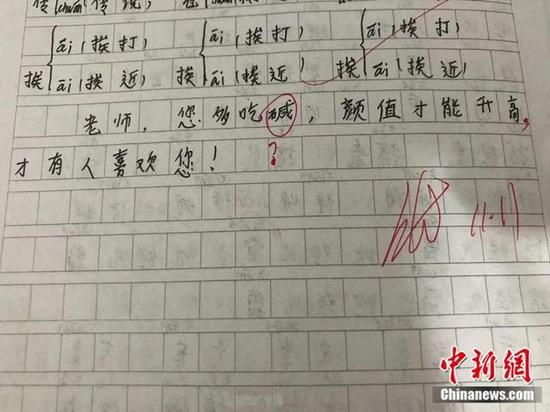 传 传说
ái(挨打) ái(挨打) ái(挨打)
挨 挨 挨
āi(挨近) āi(挨近) āi(挨近)
老师,您多吃碱,颜值才能升高,
才有人喜欢您! ?
11.11
中新网
Chinanews.com